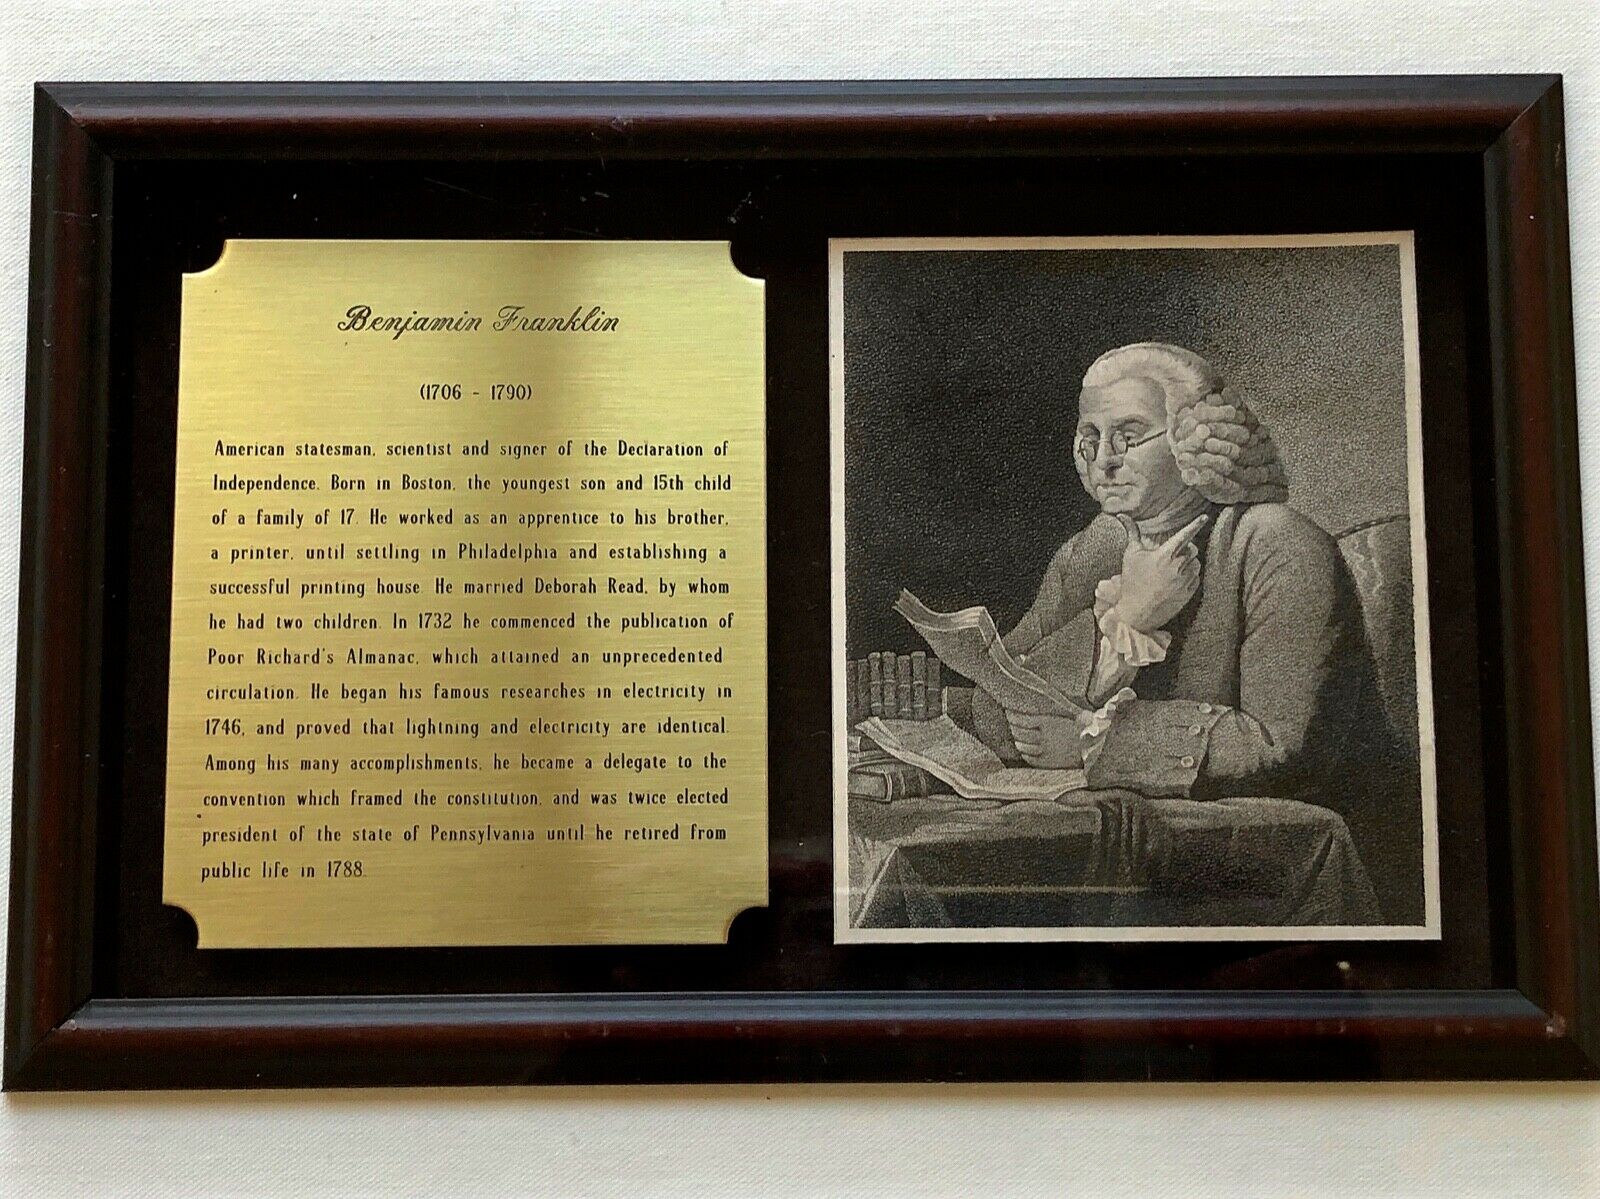 Benjamin Franklin
(1706 - 1790)
American statesman, scientist and signer of the Declaration of
Independence. Born in Boston, the youngest son and 15th child
of a family of 17. He worked as an apprentice to his brother,
a printer, until settling in Philadelphia and establishing a
successful printing house. He married Deborah Read, by whom
he had two children. In 1732 he commenced the publication of
Poor Richard's Almanac, which attained an unprecedented
circulation. He began his famous researches in electricity in
1746, and proved that lightning and electricity are identical.
Among his many accomplishments, he became a delegate to the
convention which framed the constitution, and was twice elected
president of the state of Pennsylvania until he retired from
public life in 1788.